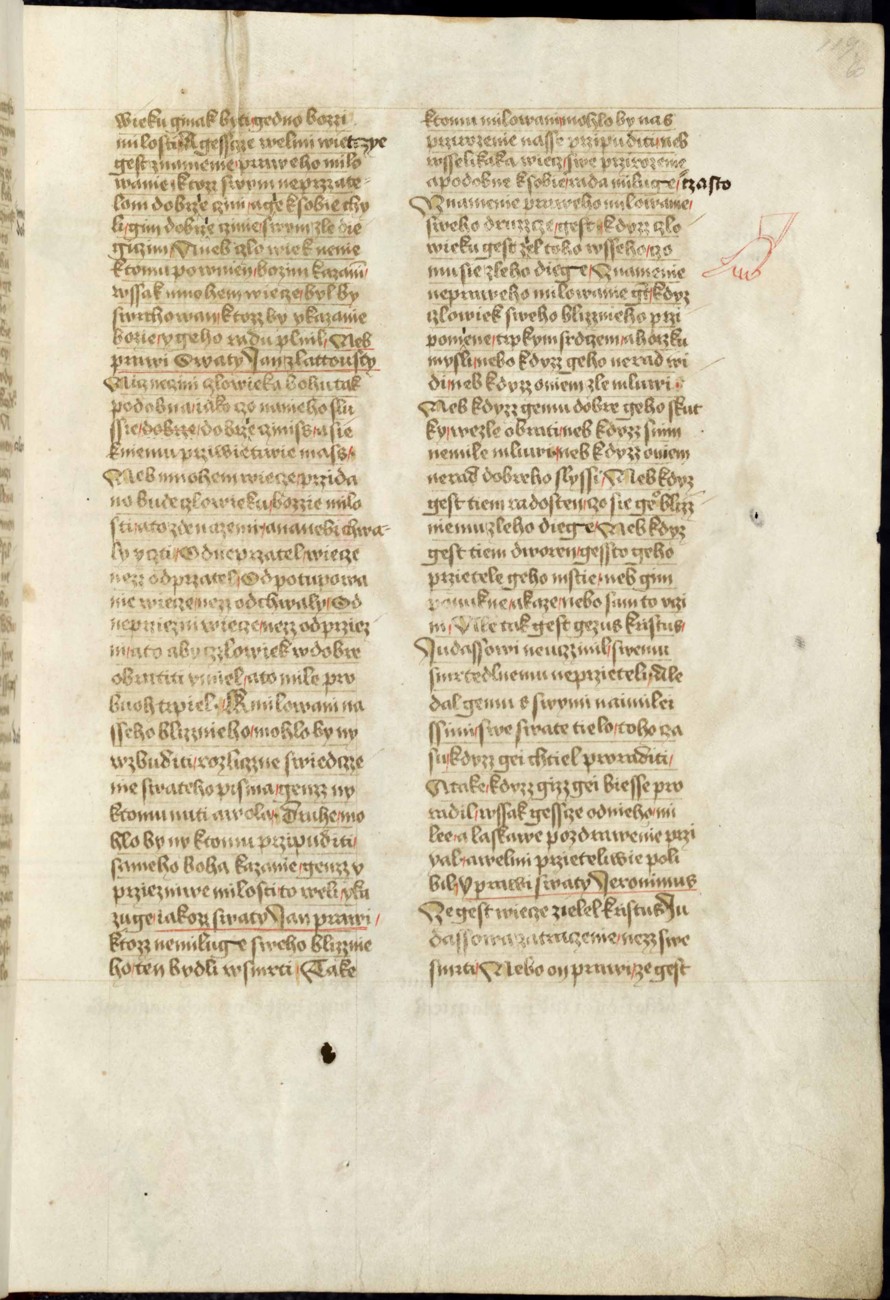 wieku ginak byti gedno bozzi
milosti A gesscze welmi wietczye
gest znamenie praweho milo
wanie ktozz swym neprzate-
lom dobrze czini a gek sobie chy
li gim dobrze czinie swym zle die
giczim Aneb czlowiek nenie
ktomu powinen bozim kazanim
wssak mnohem wiecze byl by
swrchowan ktozz by vkazanie
bozie y geho radu plnil Neb
prawi Swaty Jan zlattousty
Nicz neczini czlowieka bohu tak
podobna iako czo nameho slu
ssie dobrze dobrze cziniss a sie
kniemu prziwietiwie mass
Neb mnohem wiecze przida
no bude czlowieku bozzie milo
sti ato zde na zemi a na nebi chwa-
ly y czti Od neprzatel wiecze
nezz od przatel Od potupowa
nie wiecze nezz od chwaly Od
neprziezni wiecze nezz od prziez
ni ato aby czlowiek w dobre
obratiti vmiel ato mile pro
buoh trpiel K milowani na
sseho blizznieho mohlo by ny
wzbuditi rozliczne swiedcze
nie swateho pisma genzz ny
ktomu nuti a wola Druhe mo
hlo by ny ktomu przipuditi
sameho boha kazanie genzz y
prziezniwe milosti to weli vka
zuge iakozz swaty Jan prawi
ktozz nemiluge sweho blizznie
ho ten bydli w smrti Take
ktomu milowani mohlo by nas
przirozenie nasse przipuditi neb
wsselikaka wiecz swe przirozenie
a podobne k sobie rada miluge czasto
Znamenie praweho milowanie
sweho druzcze gest kdyzz czlo
wieku gest zel toho wsseho czo
mu sie zleho diege Znamenie
nepraweho milowanie gt kdyz
czlowiek sweho blizznieho przi
pomene trpkym srdczem a horzku
mysli nebo kdyzz geho nerad wi
di neb kdyzz oniem zle mluwi
Neb kdyzz gemu dobre geho skut
ky w zle obrati neb kdyzz snim
nemile mluwi neb kdyzz oniem
nerad dobreho slyssi Neb kdyz
gest tiem radosten czo sie geo blizz
niemu zleho diege Neb kdyz
gest tiem dworen gessto geho
przietele geho mstie neb gim
ponukne akaze nebo sam to vczi
ni Ale tak gest gezus kristus
Judassowi neuczinil swemu
smrtedlnemu neprzieteli Ale
dal gemu s swymi naimilei
ssimi swe swate tielo toho cza
su kdyzz gei chtiel proraditi
A take kdyzz gizz gei biesse pro
radil wssak gesscze od nieho mi
lee a laskawe pozdrawenie przi
yal a welmi przieteliwie poli
bil Y prawi swaty Jeronimus
Ze gest wiecze zielel kristus Ju
dassowa zatraczenie nezz swe
smrti Nebo on prawi ze gest